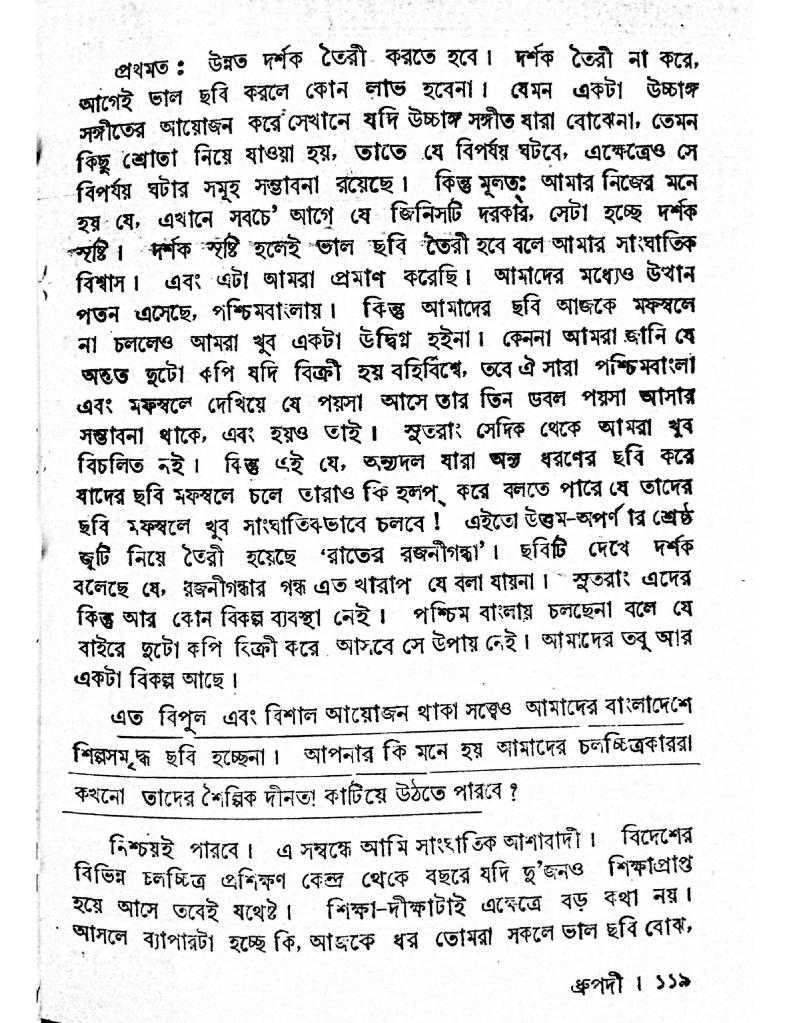 প্রথমত : উন্নত দর্শক তৈরী করতে হবে। দর্শক তৈরী না করে,
আগেই ভাল ছবি করলে কোন লাভ হবেনা। যেমন একটা উচ্চাঙ্গ
সঙ্গীতের আয়োজন করে সেখানে যদি উচ্চাঙ্গ সঙ্গীত যারা বোঝেনা, তেমন
কিছু শ্রোতা নিয়ে যাওয়া হয়, তাতে যে বিপর্যয় ঘটবে, এক্ষেত্রেও সে
বিপর্যয় ঘটার সমূহ সম্ভাবনা রয়েছে। কিন্তু মূলত: আমার নিজের মনে
হয় যে, এখানে সবচে' আগে যে জিনিসটি দরকার, সেটা হচ্ছে দর্শক
সৃষ্টি। দর্শক সৃষ্টি হলেই ভাল ছবি তৈরী হবে বলে আমার সাংঘাতিক
বিশ্বাস। এবং এটা আমরা প্রমাণ করেছি। আমাদের মধ্যেও উত্থান
পতন এসেছে, পশ্চিমবাংলায়। কিন্তু আমাদের ছবি আজকে মফস্বলে
না চললেও আমরা খুব একটা উদ্বিগ্ন হইনা। কেননা আমরা জানি যে
অন্তত দুটো কপি যদি বিক্রী হয় বহির্বিশ্বে, তবে ঐ সারা পশ্চিমবাংলা
এবং মফস্বলে দেখিয়ে যে পয়সা আসে তার তিন ডবল পয়সা আসার
সম্ভাবনা থাকে, এবং হয়ও তাই। সুতরাং সেদিক থেকে আমরা খুব
বিচলিত নই। কিন্তু এই যে, অন্যদল যারা অন্য ধরণের ছবি করে
যাদের ছবি মফস্বলে চলে তারাও কি হলপ্ করে বলতে পারে যে তাদের
ছবি মফস্বলে খুব সাংঘাতিকভাবে চলবে! এইতো উত্তম-অপর্ণার শ্রেষ্ঠ
জুটি নিয়ে তৈরী হয়েছে 'রাতের রজনীগন্ধা'। ছবিটি দেখে দর্শক
বলেছে যে, রজনীগন্ধার গন্ধ এত খারাপ যে বলা যায়না। সুতরাং এদের
কিন্তু আর কোন বিকল্প ব্যবস্থা নেই। পশ্চিম বাংলায় চলছেনা বলে যে
বাইরে দুটো কপি বিক্রী করে আসবে সে উপায় নেই। আমাদের তবু আর
একটা বিকল্প আছে।
এত বিপুল এবং বিশাল আয়োজন থাকা সত্ত্বেও আমাদের বাংলাদেশে
শিল্পসমৃদ্ধ ছবি হচ্ছেনা। আপনার কি মনে হয় আমাদের চলচ্চিত্রকাররা
কখনো তাদের শৈল্পিক দীনতা কাটিয়ে উঠতে পারবে?
নিশ্চয়ই পারবে। এ সম্বন্ধে আমি সাংঘাতিক আশাবাদী। বিদেশের
বিভিন্ন চলচ্চিত্র প্রশিক্ষণ কেন্দ্র থেকে বছরে যদি দু'জনও শিক্ষাপ্রাপ্ত
হয়ে আসে তবেই যথেষ্ট। শিক্ষা-দীক্ষাটাই এক্ষেত্রে বড় কথা নয়।
আসলে ব্যাপারটা হচ্ছে কি, আজকে ধর তোমরা সকলে ভাল ছবি বোঝ,
ধ্রুপদী । ১১৯